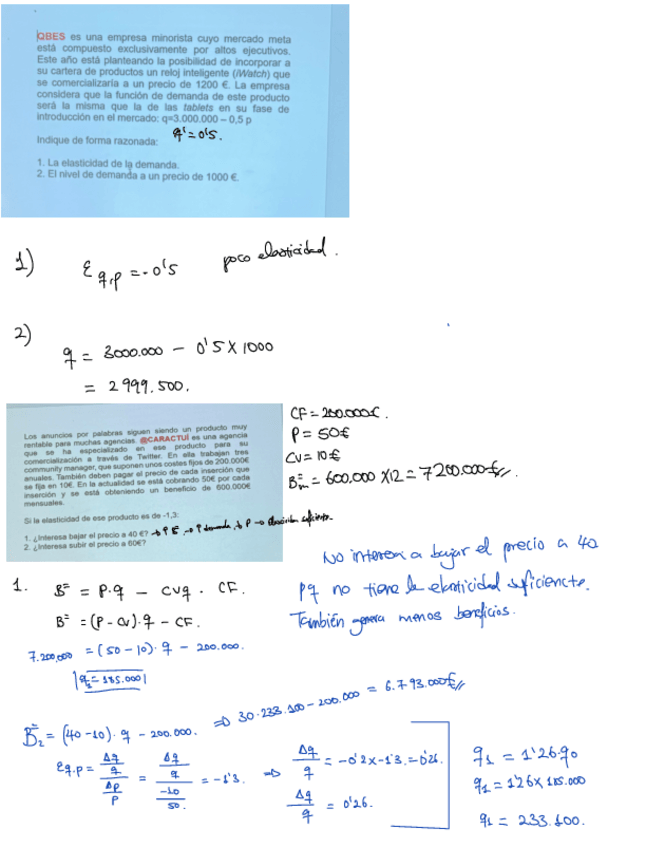 QBES es una empresa minorista cuyo mercado meta
está compuesto exclusivamente por altos ejecutivos.
Este año está planteando la posibilidad de incorporar a
su cartera de productos un reloj inteligente (iWatch) que
se comercializaría a un precio de 1200 €. La empresa
considera que la función de demanda de este producto
será la misma que la de las tablets en su fase de
introducción en el mercado: q=3.000.000 – 0,5 p
q'=0'5.
Indique de forma razonada:
1. La elasticidad de la demanda.
2. El nivel de demanda a un precio de 1000 €.
1) Ɛq,p = -0'5 poco elasticidad.
2) q = 3000.000 - 0'5 X 1000
= 2 999.500.
Los anuncios por palabras siguen siendo un producto muy
rentable para muchas agencias. @CARACTUÍ es una agencia
que se ha especializado en ese producto para su
comercialización a través de Twitter. En ella trabajan tres
community manager, que suponen unos costes fijos de 200.000€
anuales. También deben pagar el precio de cada inserción que
se fija en 10€. En la actualidad se está cobrando 50€ por cada
inserción y se está obteniendo un beneficio de 600.000€
mensuales.
Si la elasticidad de ese producto es de -1,3:
1. ¿Interesa bajar el precio a 40 €?
2. ¿Interesa subir el precio a 60€?
CF = 200.000€.
P = 50€
CV = 10€
B^=_m = 600.000 X12 = 7200.000€
No interesa bajar el precio a 40
pq no tiene la elasticidad suficiente.
También genera menos beneficios.
1. B^= = P·q - CVq · CF.
B^= = (P - CV)·q - CF.
7.200,000 = (50 - 10)· q - 200.000.
q_1 = 185.000
B^=_2 = (40 - 10)· q - 200.000. ⇒ 30·233.100 - 200.000 = 6.793.000€
Ɛq.p = Δq/q / Δp/p = Δq/q / -10/50 = -1'3. ⇒ Δq/q = -0'2 x -1'3. = 0'26.
Δq/q = 0'26.
q1 = 1'26·q0
q1 = 1'26 x 185.000
q1 = 233.100.